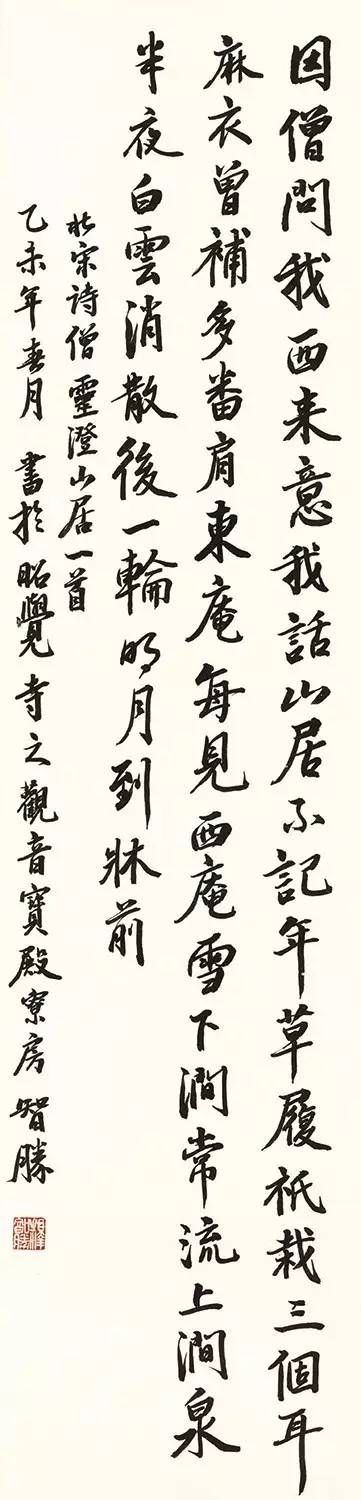 因僧問我西来意我話山居不記年草履祇栽三個耳
麻衣曾補多番肩東庵每見西庵雪下澗常流上澗泉
半夜白雲消散後一輪明月到牀前
北宋詩僧靈澄山居一首
乙未年春月書於昭覺寺之觀音寶殿寮房智勝